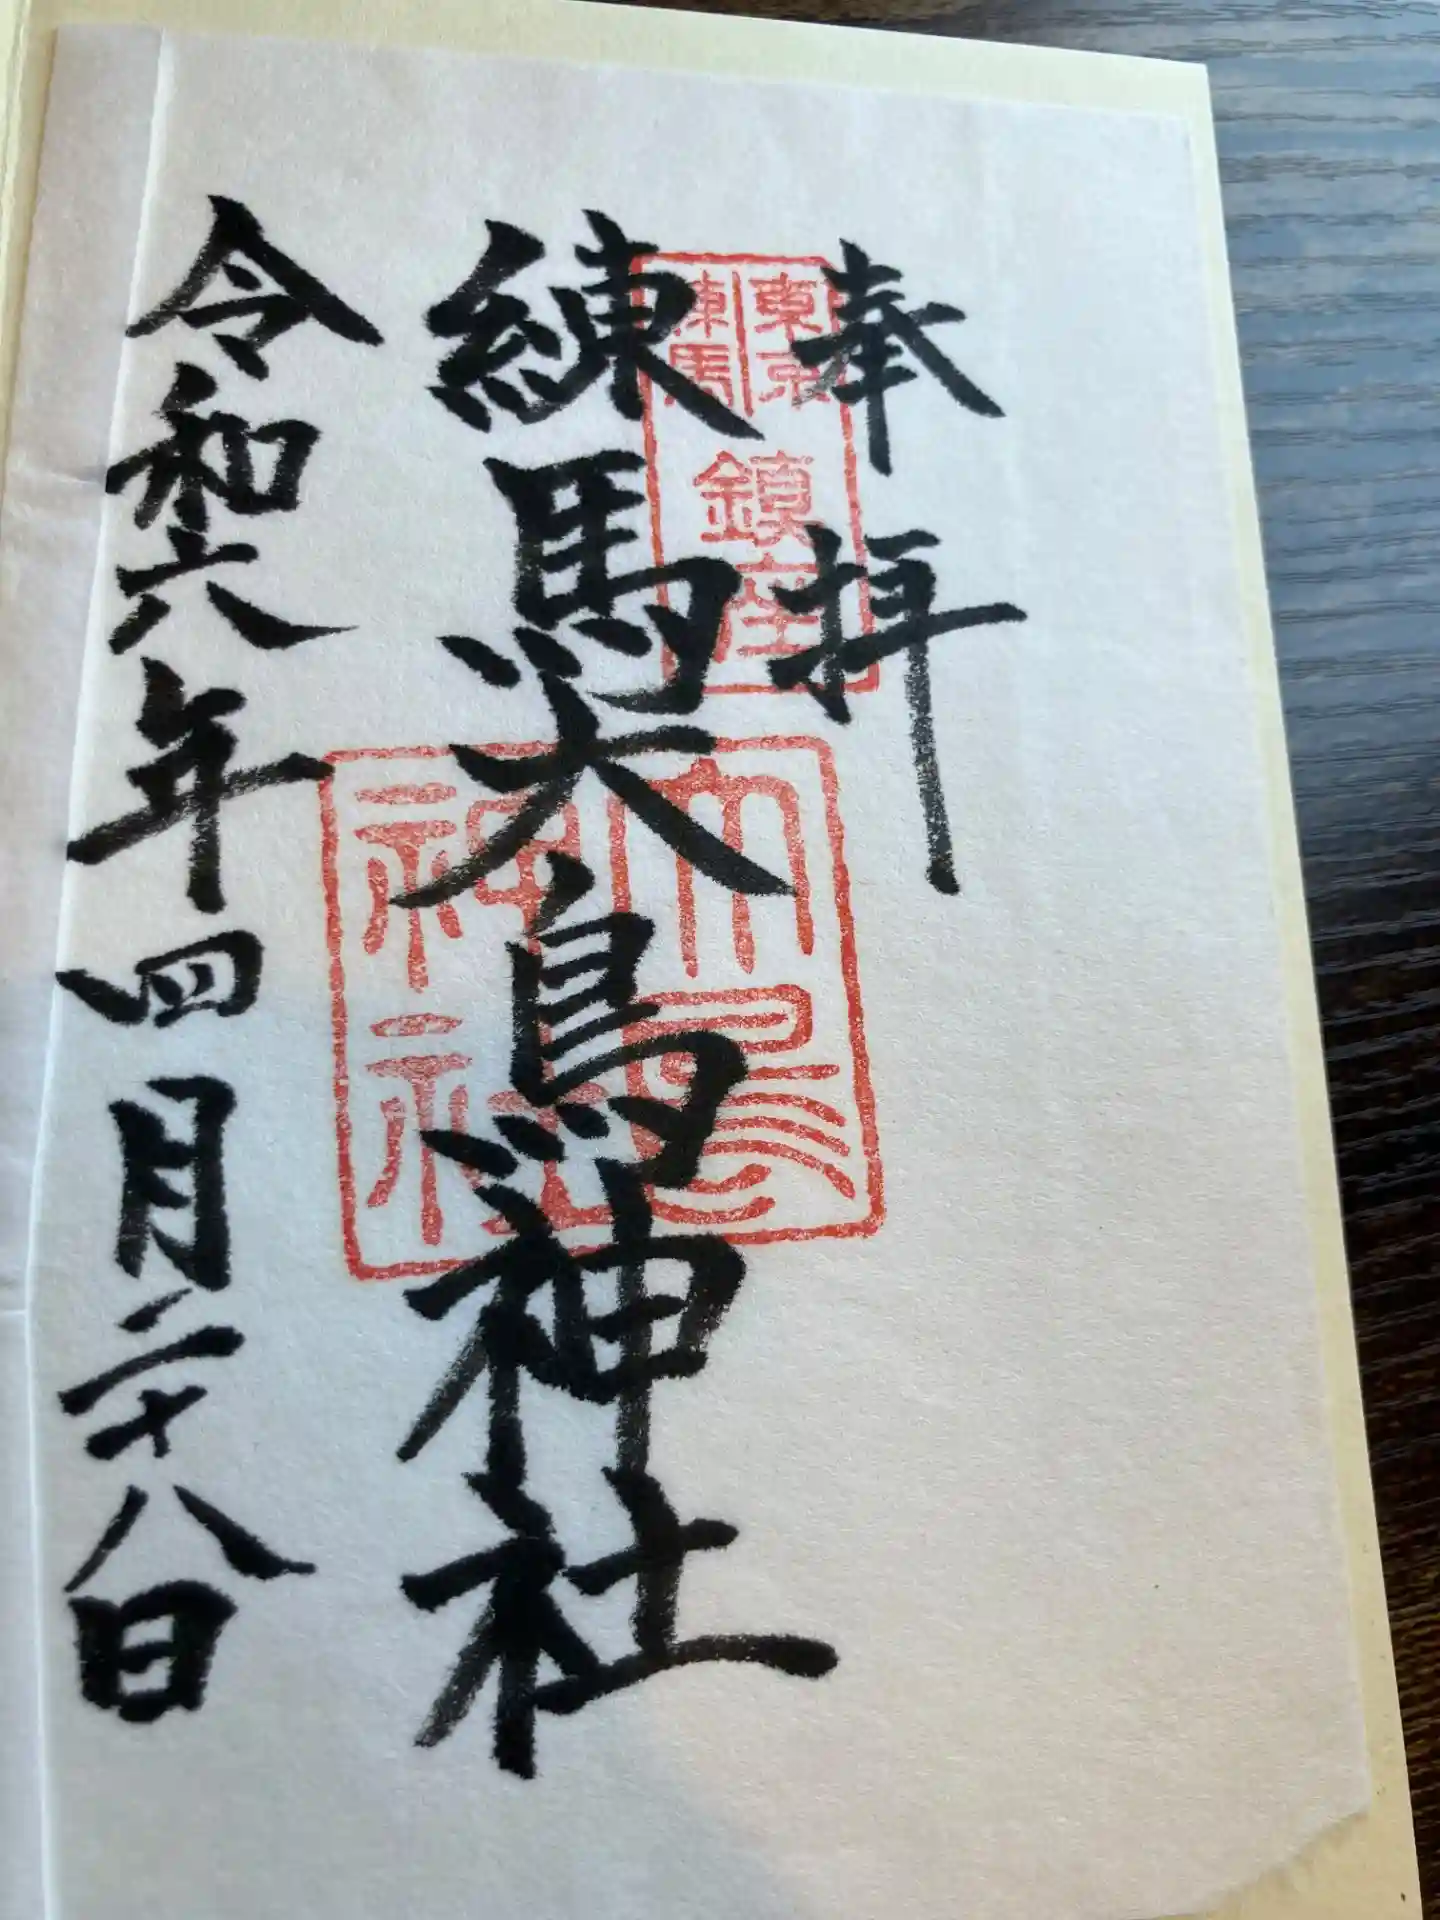 奉拝
東京
練馬
鎮座
練馬大鳥神社
大鳥
神社
令和六年四月二十八日